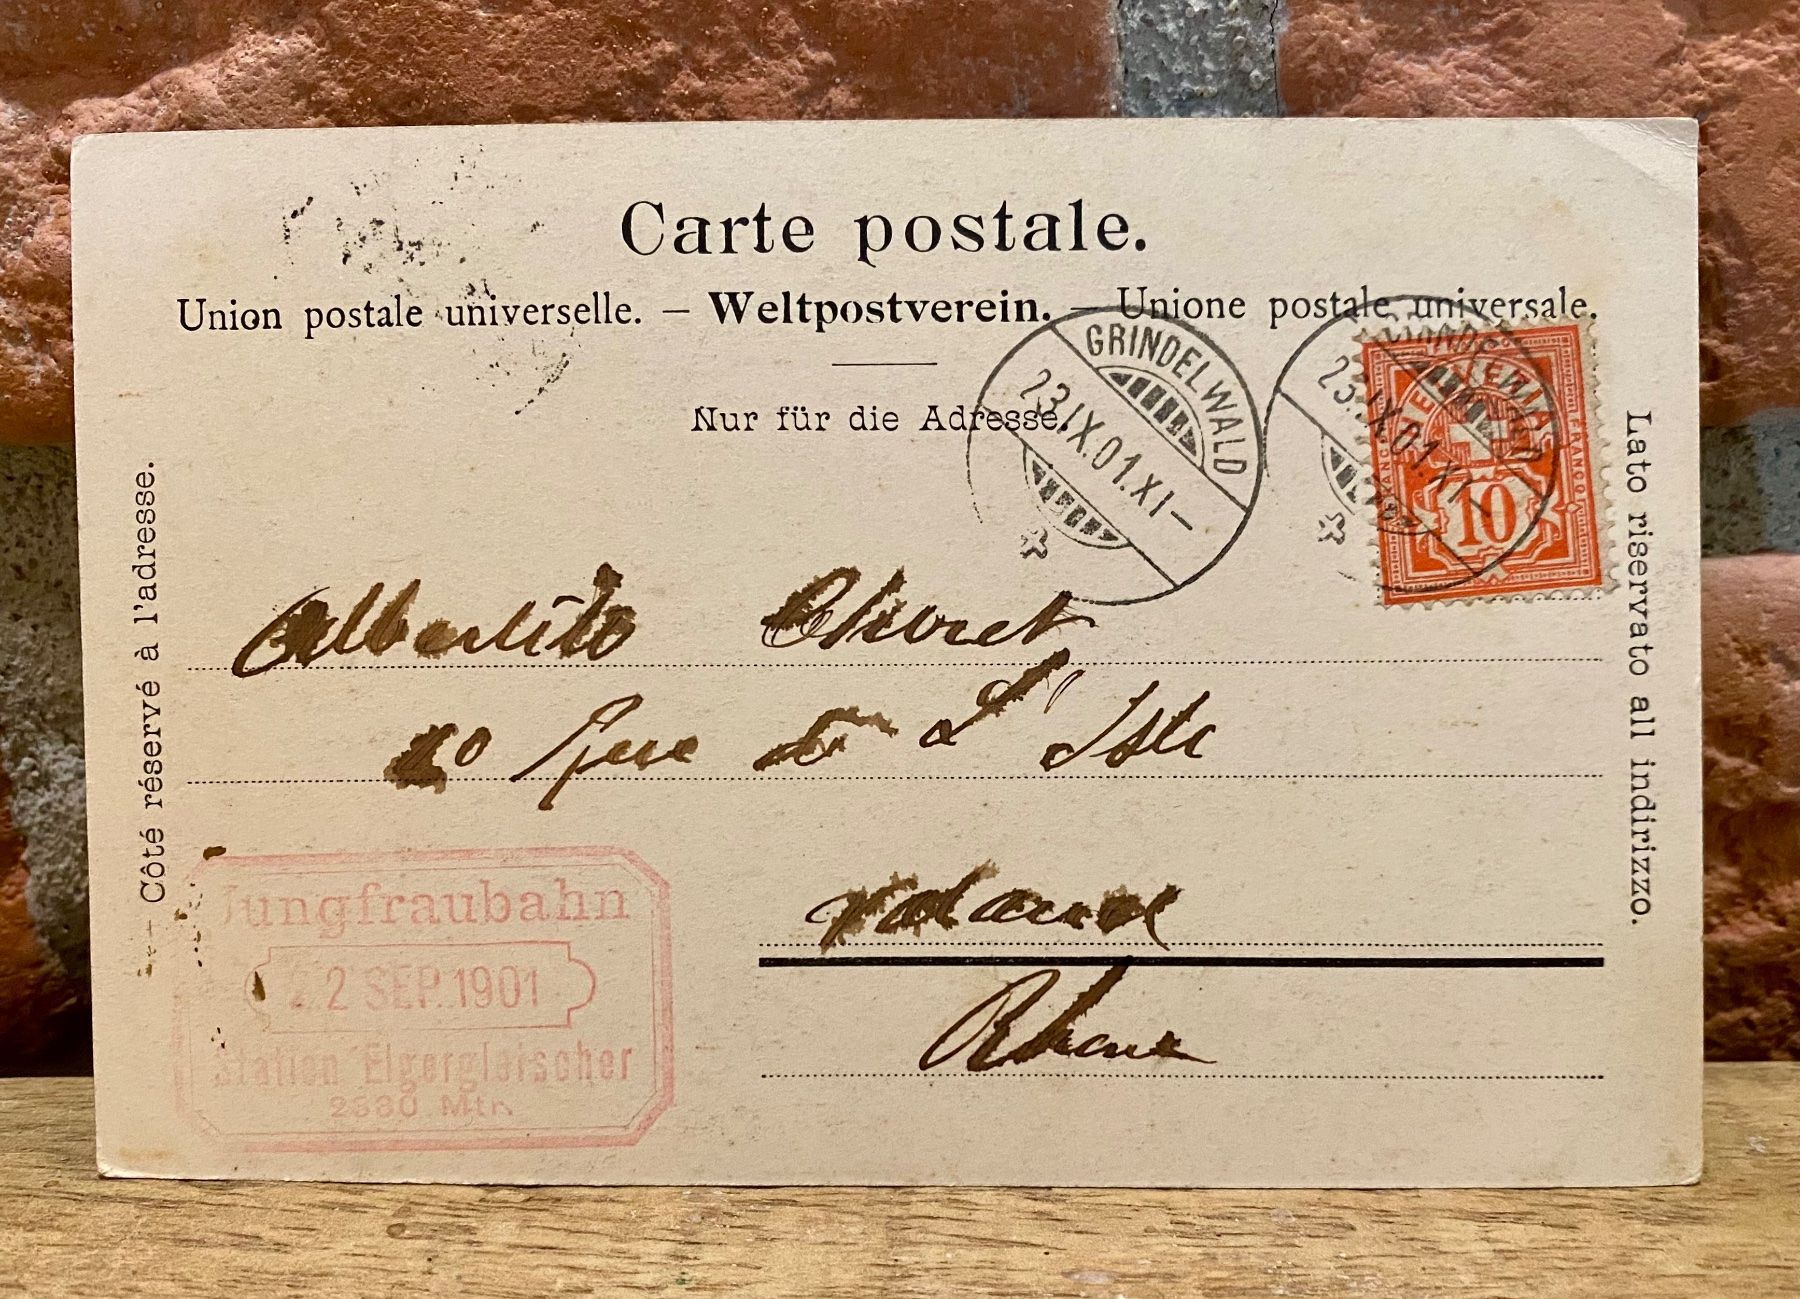 Carte postale.
Union postale universelle. — Weltpostverein. — Unione postale universale.
Nur für die Adresse.
GRINDELWALD
23.IX.01.XI–
GRINDELWALD
23.IX.01.XI–
FRANCO
10
Côté réservé à l'adresse.
Lato riservato all indirizzo.
20 Rue de L'Isle
Rhone
Jungfraubahn
22 SEP. 1901
Station Eigergletscher
2330 Mtr.